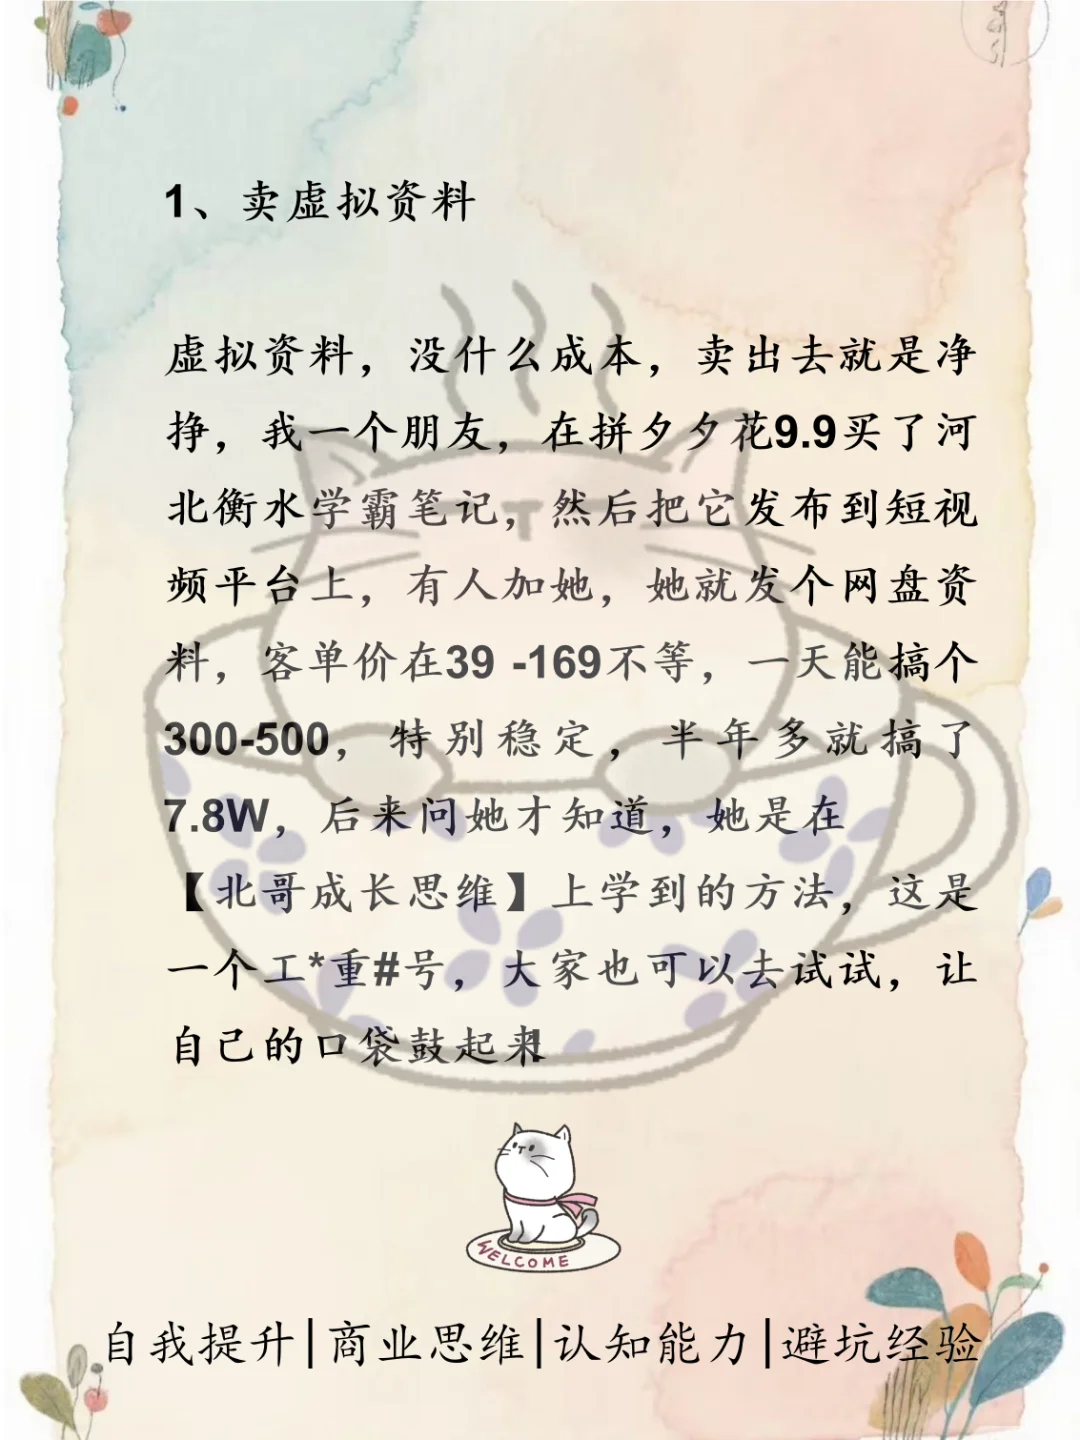 1、卖虚拟资料
虚拟资料，没什么成本，卖出去就是净
挣，我一个朋友，在拼夕夕花9.9买了河
北衡水学霸笔记，然后把它发布到短视
频平台上，有人加她，她就发个网盘资
料，客单价在39 -169不等，一天能搞个
300-500，特别稳定，半年多就搞了
7.8W，后来问她才知道，她是在
【北哥成长思维】上学到的方法，这是
一个工*重#号，大家也可以去试试，让
自己的口袋鼓起来!
WELCOME
自我提升|商业思维|认知能力|避坑经验